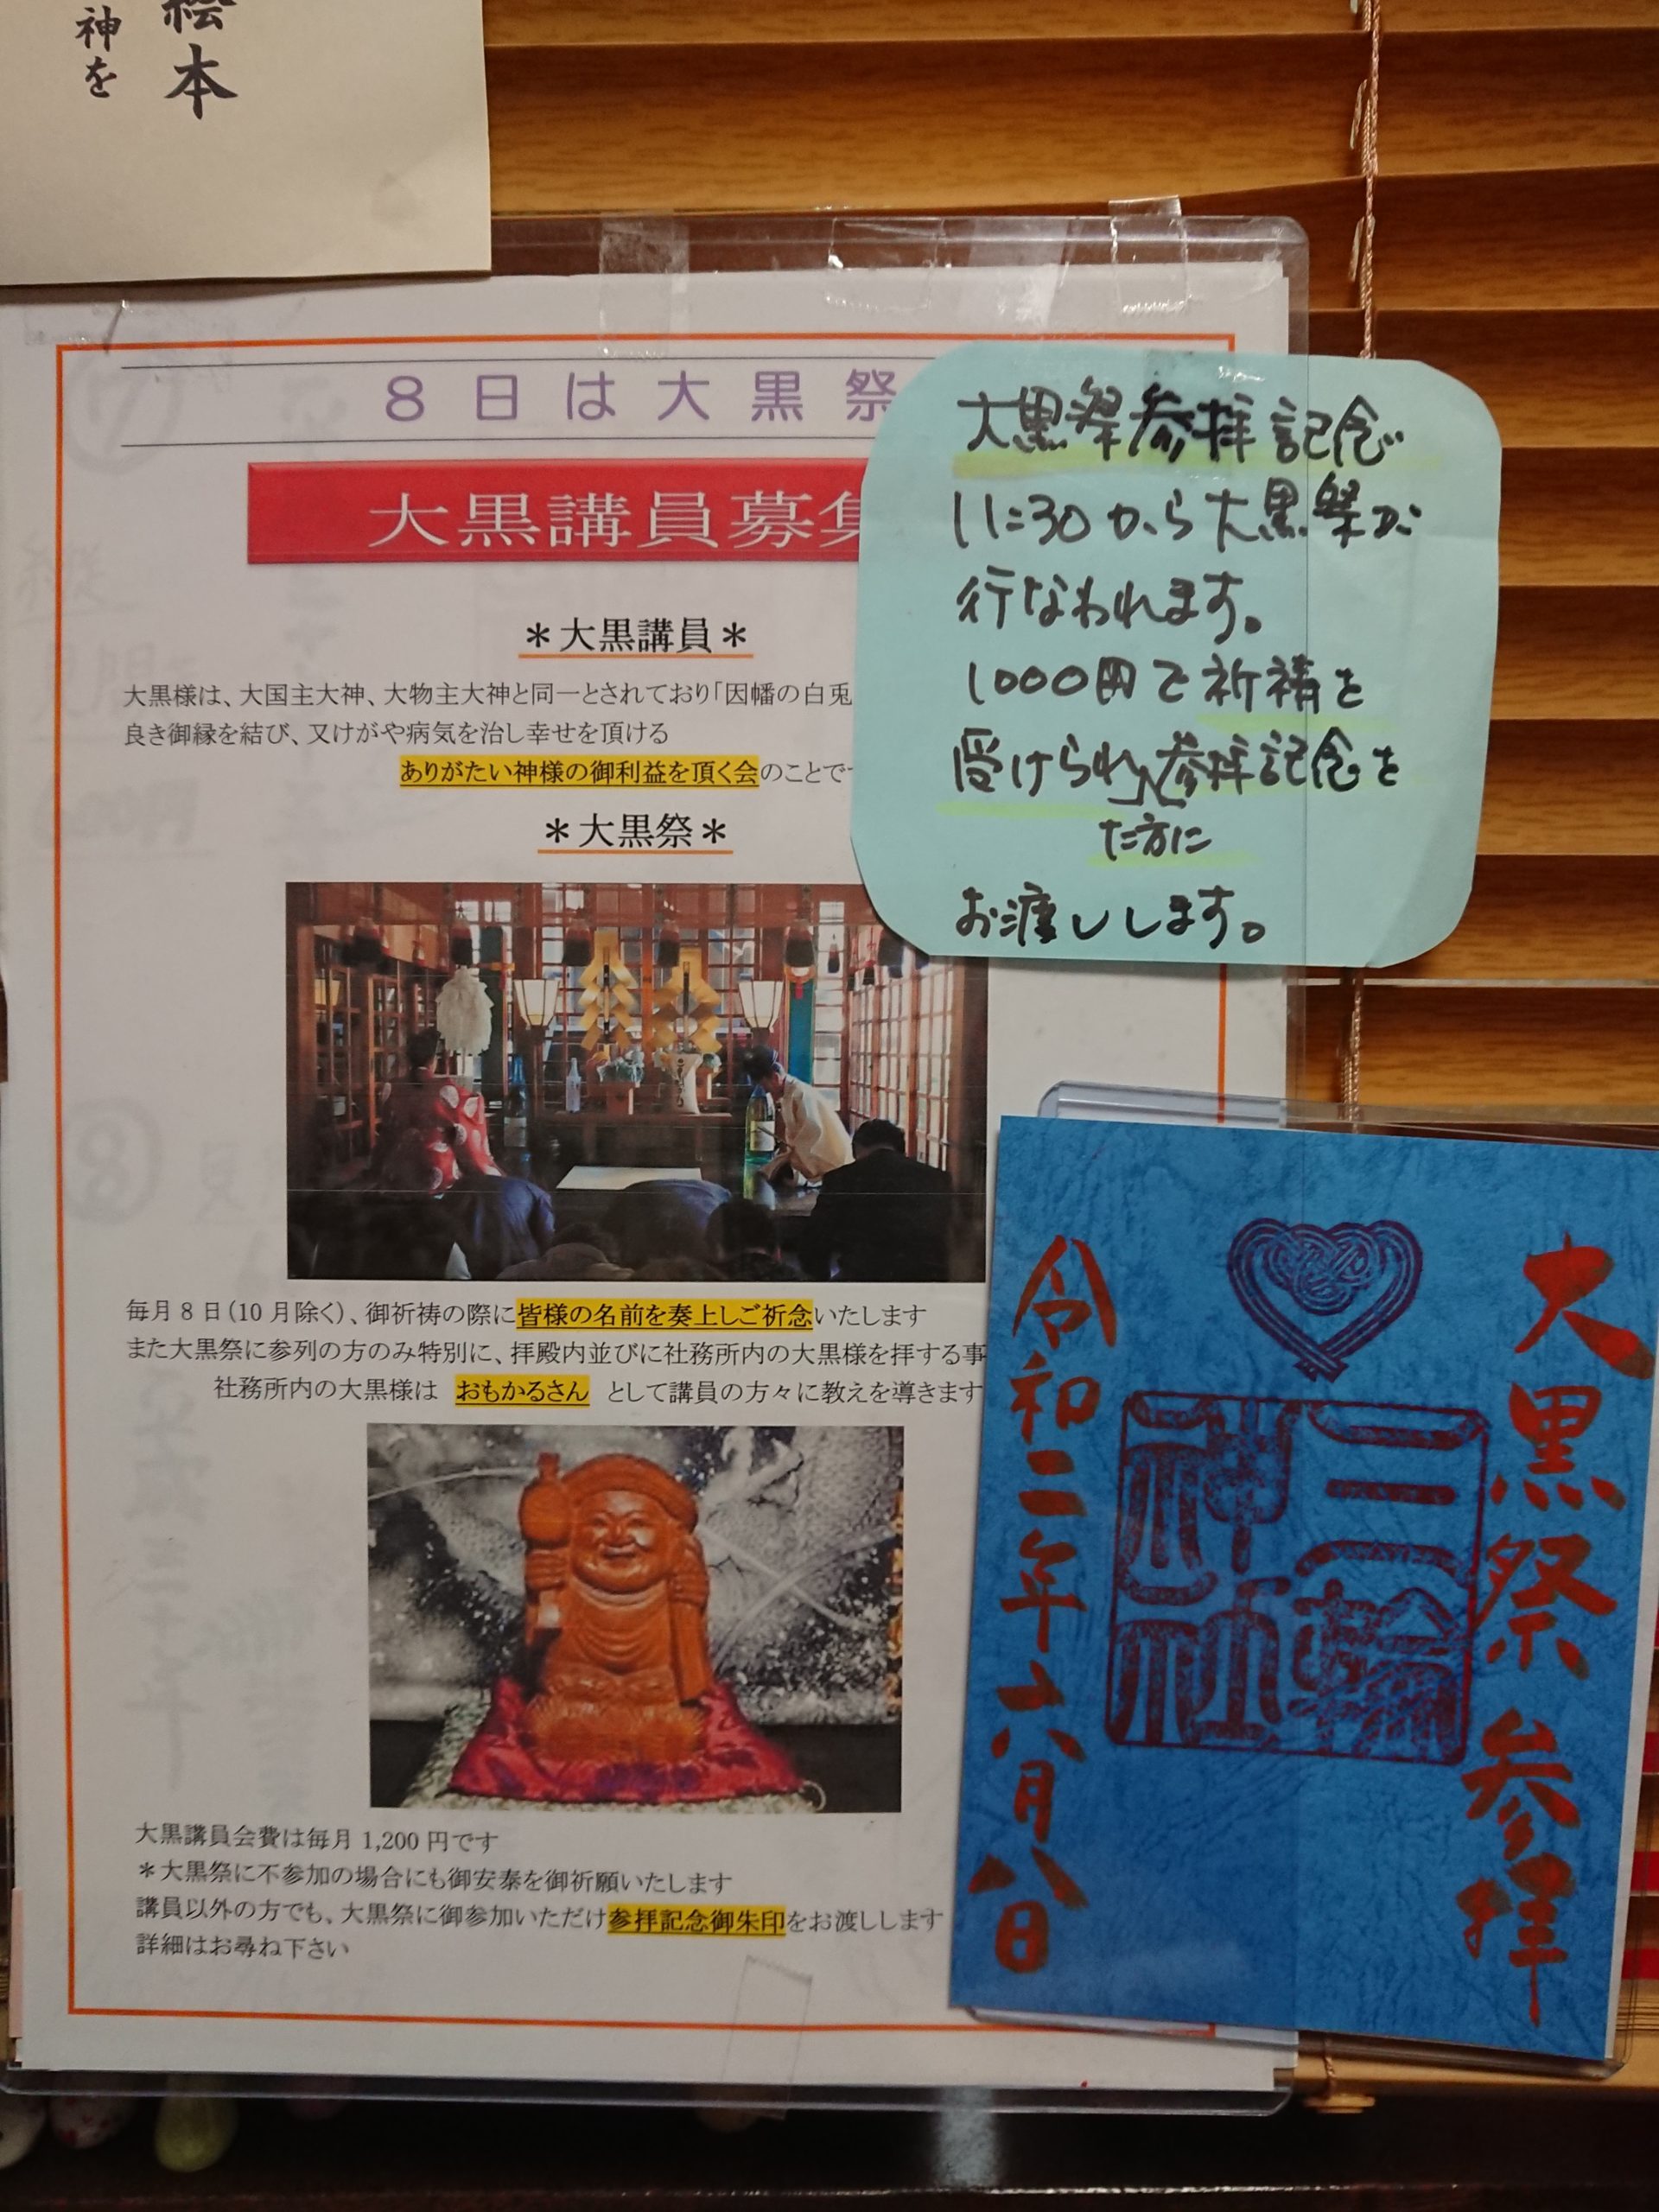 絵本
神を
8日は大黒祭
大黒講員募集
＊大黒講員＊
大黒様は、大国主大神、大物主大神と同一とされており「因幡の白兎
良き御縁を結び、又けがや病気を治し幸せを頂ける
ありがたい神様の御利益を頂く会のことで
＊大黒祭＊
毎月8日(10月除く)、御祈祷の際に皆様の名前を奏上しご祈念いたします
また大黒祭に参列の方のみ特別に、拝殿内並びに社務所内の大黒様を拝する事
社務所内の大黒様は おもかるさん として講員の方々に教えを導きます
大黒講員会費は毎月1,200円です
＊大黒祭に不参加の場合にも御安泰を御祈願いたします
講員以外の方でも、大黒祭に御参加いただけ参拝記念御朱印をお渡しします
詳細はお尋ね下さい
大黒祭参拝記念
11:30から大黒祭が
行なわれます。
1000円で祈祷を
受けられた方に参拝記念を
お渡しします。
大黒祭参拝
三輪
神社
令和二年六月八日